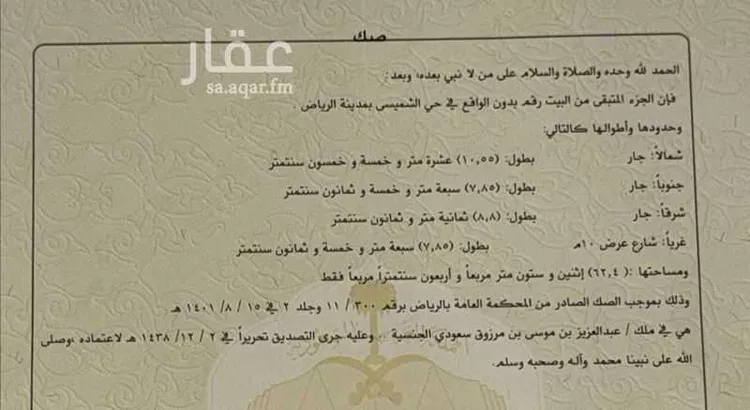 صك
عقار
sa.aqar.fm
الحمد لله وحده والصلاة والسلام على من لا نبي بعده، وبعد:
فإن الجزء المتبقى من البيت رقم بدون الواقع في حي الشميسي بمدينة الرياض .
وحدودها وأطوالها كالتالي:
شمالاً: جار بطول: (١٠,٥٥) عشرة متر و خمسة و خمسون سنتمتر
جنوباً: جار بطول: (٧,٨٥) سبعة متر و خمسة و ثمانون سنتمتر
شرقاً: جار بطول: (٨,٨) ثمانية متر و ثمانون سنتمتر
غرباً: شارع عرض ١٠م بطول: (٧,٨٥) سبعة متر و خمسة و ثمانون سنتمتر
ومساحتها :( ٦٢,٤) إثنين و ستون متر مربعاً و أربعون سنتمتراً مربعاً فقط
وذلك بموجب الصك الصادر من المحكمة العامة بالرياض برقم ٣٠٠/ ١١ وجلد ٢ في ١٥ / ٨ / ١٤٠١ هـ
هي في ملك / عبدالعزيز بن موسى بن مرزوق سعودي الجنسية .. وعليه جرى التصديق تحريراً في ٢ / ١٢/ ١٤٣٨ هـ لاعتماده ،وصلى
الله على نبينا محمد وآله وصحبه وسلم.